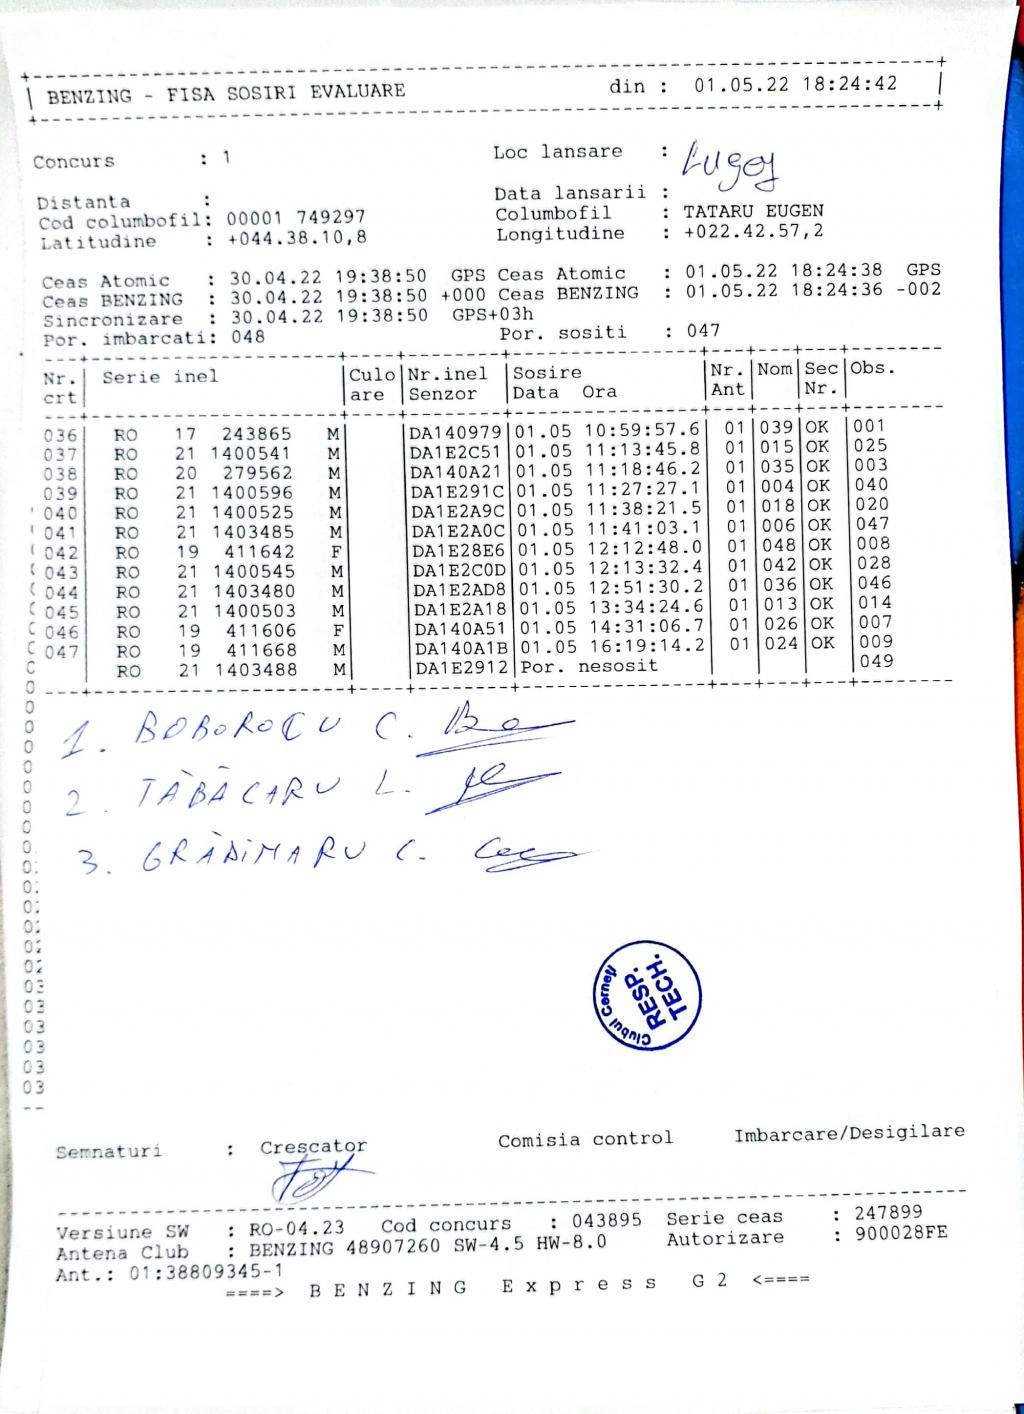 BENZING - FISA SOSIRI EVALUARE din : 01.05.22 18:24:42
Concurs : 1 Loc lansare : Lugoj
Distanta : Data lansarii :
Cod columbofil: 00001 749297 Columbofil : TATARU EUGEN
Latitudine : +044.38.10,8 Longitudine : +022.42.57,2
Ceas Atomic : 30.04.22 19:38:50 GPS Ceas Atomic : 01.05.22 18:24:38 GPS
Ceas BENZING : 30.04.22 19:38:50 +000 Ceas BENZING : 01.05.22 18:24:36 -002
Sincronizare : 30.04.22 19:38:50 GPS+03h
Por. imbarcati: 048 Por. sositi : 047
Nr. Serie inel Culo Nr.inel Sosire Nr. Nom Sec Obs.
crt are Senzor Data Ora Ant Nr.
036 RO 17 243865 M DA140979 01.05 10:59:57.6 01 039 OK 001
037 RO 21 1400541 M DA1E2C51 01.05 11:13:45.8 01 015 OK 025
038 RO 20 279562 M DA140A21 01.05 11:18:46.2 01 035 OK 003
039 RO 21 1400596 M DA1E291C 01.05 11:27:27.1 01 004 OK 040
040 RO 21 1400525 M DA1E2A9C 01.05 11:38:21.5 01 018 OK 020
041 RO 21 1403485 M DA1E2A0C 01.05 11:41:03.1 01 006 OK 047
042 RO 19 411642 F DA1E28E6 01.05 12:12:48.0 01 048 OK 008
043 RO 21 1400545 M DA1E2C0D 01.05 12:13:32.4 01 042 OK 028
044 RO 21 1403480 M DA1E2AD8 01.05 12:51:30.2 01 036 OK 046
045 RO 21 1400503 M DA1E2A18 01.05 13:34:24.6 01 013 OK 014
046 RO 19 411606 F DA140A51 01.05 14:31:06.7 01 026 OK 007
047 RO 19 411668 M DA140A1B 01.05 16:19:14.2 01 024 OK 009
RO 21 1403488 M DA1E2912 Por. nesosit 049
1. BOBOROCU C.
2. TĂBĂCARU L.
3. GRĂDINARU C.
Clubul Cornești
RESP.
TECH.
Semnaturi : Crescator Comisia control Imbarcare/Desigilare
Versiune SW : RO-04.23 Cod concurs : 043895 Serie ceas : 247899
Antena Club : BENZING 48907260 SW-4.5 HW-8.0 Autorizare : 900028FE
Ant.: 01:38809345-1
====> BENZING Express G2 <====